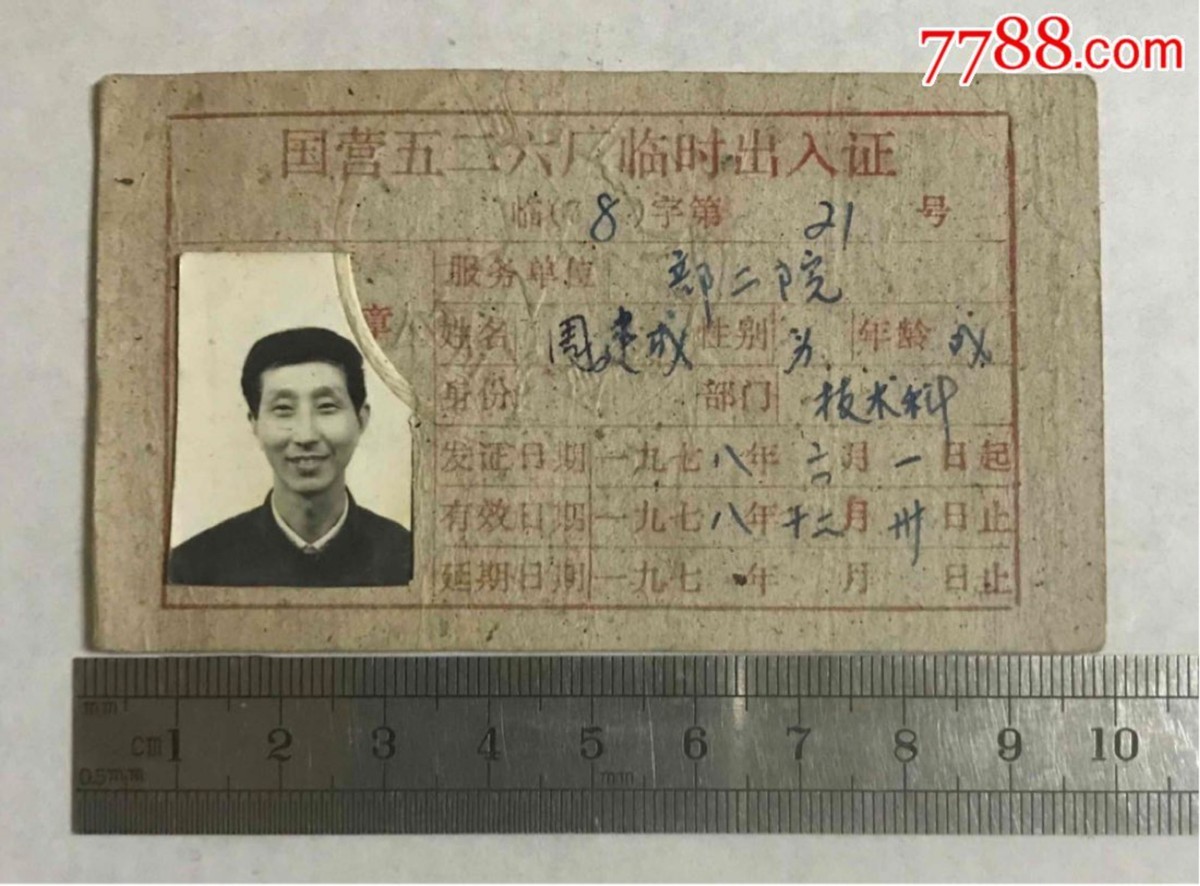 7788.com
国营五二六厂临时出入证
临(78)字第 21 号
章
服务单位 部二院
姓名 周建成 性别 男 年龄 成
身份 部门 技术科
发证日期 一九七八年 六月 一日起
有效日期 一九七八年 十二月 卅日止
延期日期 一九七 年 月 日止
mm
cm 1 2 3 4 5 6 7 8 9 10
0.5mm mm